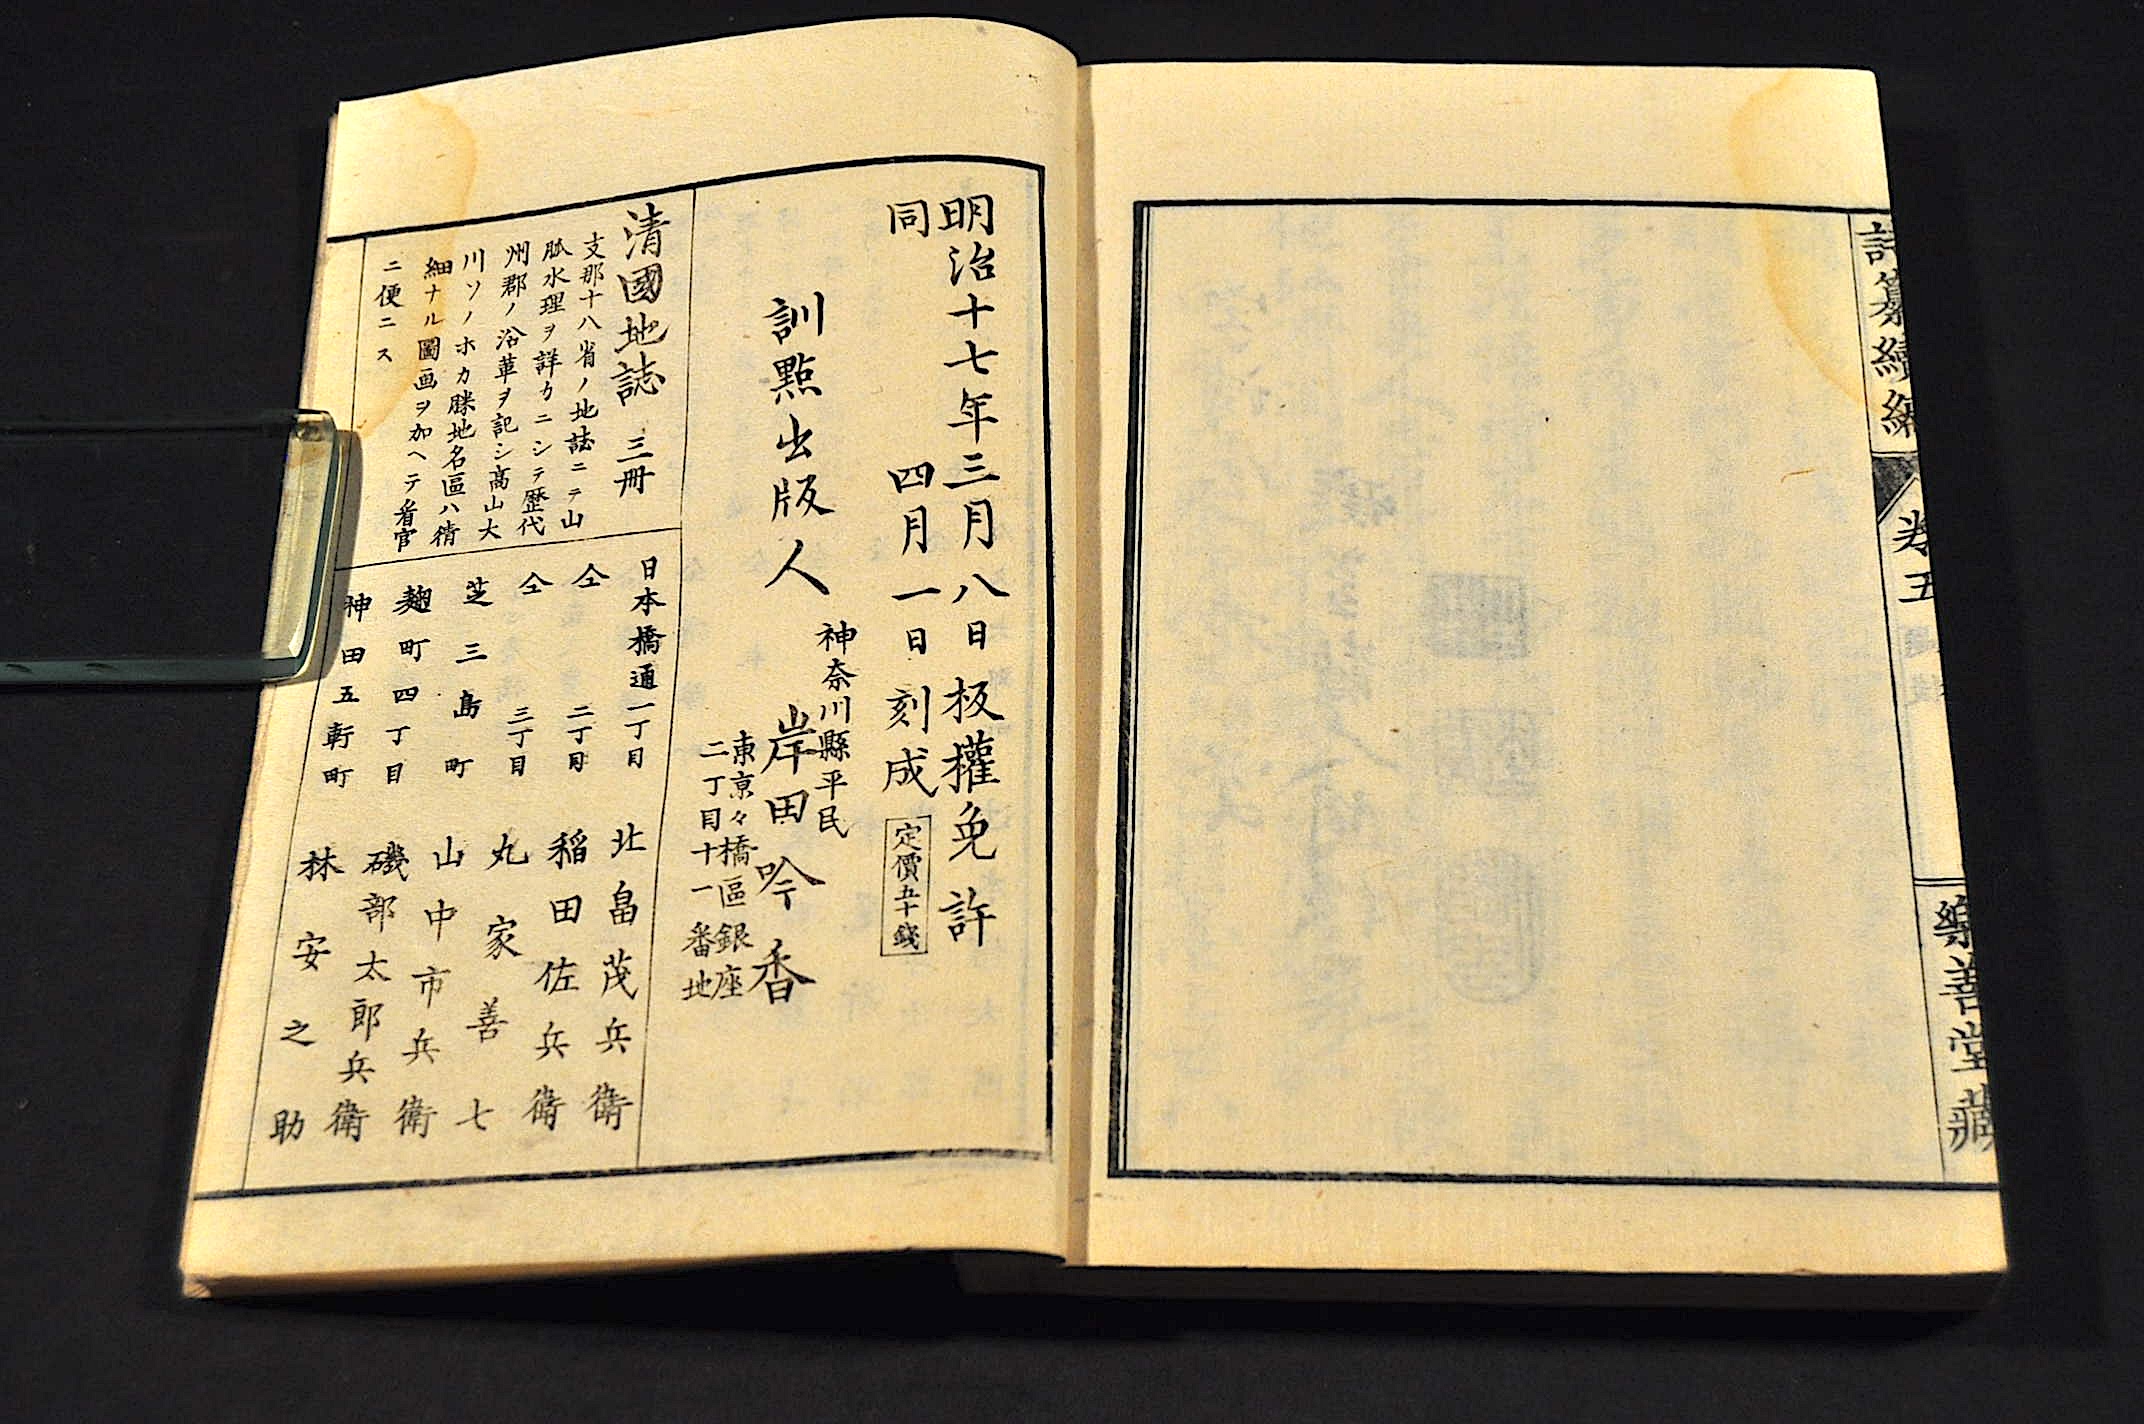 續編
卷五
樂善堂藏
明治十七年三月八日板權免許
同 四月一日刻成
定價五十錢
訓點出版人
神奈川縣平民
岸田吟香
東京々橋區銀座
二丁目十一番地
清國地誌 三冊
支那十八省ノ地誌ニテ山
脈水理ヲ詳カニシテ歷代
州郡ノ沿革ヲ記シ高山大
川ソノホカ勝地名區ハ精
細ナル圖画ヲ加ヘテ看官
ニ便ニス
日本橋通一丁目 北畠茂兵衛
仝 二丁目 稲田佐兵衛
仝 三丁目 丸家善七
芝三島町 山中市兵衛
麹町四丁目 磯部太郎兵衛
神田五軒町 林安之助